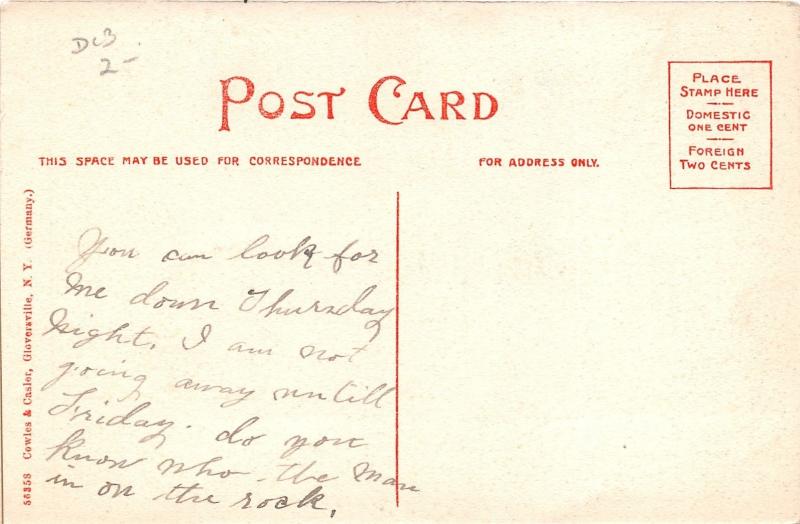 DcB
2-
POST CARD
PLACE
STAMP HERE
DOMESTIC
ONE CENT
FOREIGN
TWO CENTS
THIS SPACE MAY BE USED FOR CORRESPONDENCE
FOR ADDRESS ONLY.
56358 Cowles & Casler, Gloversville, N. Y. (Germany.)
You can look for
me down Thursday
night. I am not
going away untill
Friday. do you
know who the man
in on the rock.